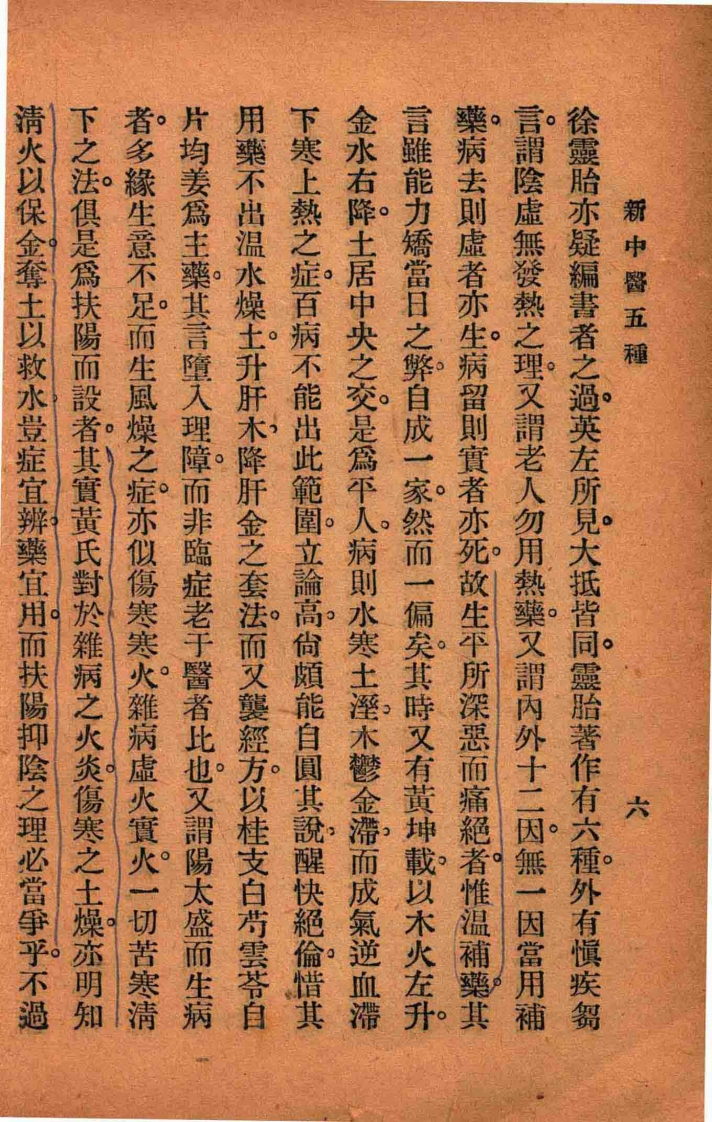 新中醫五種
六
徐靈胎亦疑編書者之過。英左所見。大抵皆同。靈胎著作有六種。外有愼疾芻
言。謂陰虛無發熱之理。又謂老人勿用熱藥。又謂內外十二因。無一因當用補
藥。病去則虛者亦生。病留則實者亦死。故生平所深惡而痛絕者。惟溫補藥。其
言雖能力矯當日之弊。自成一家。然而一偏矣。其時又有黃坤載。以木火左升。
金水右降。土居中央之交。是爲平人。病則水寒土溼。木鬱金滯。而成氣逆血滯
下寒上熱之症。百病不能出此範圍。立論高尙。頗能自圓其說。醒快絕倫。惜其
用藥不出溫水燥土。升肝木、降肝金之套法。而又襲經方。以桂支白芍雲苓白
片均姜爲主藥。其言墮入理障。而非臨症老于醫者比也。又謂陽太盛而生病
者。多緣生意不足。而生風燥之症。亦似傷寒寒火。雜病虛火實火。一切苦寒淸
下之法。俱是爲扶陽而設者。其實黃氏對於雜病之火炎。傷寒之土燥。亦明知
淸火以保金。奪土以救水。豈症宜辨。藥宜用。而扶陽抑陰之理必當爭乎。不過